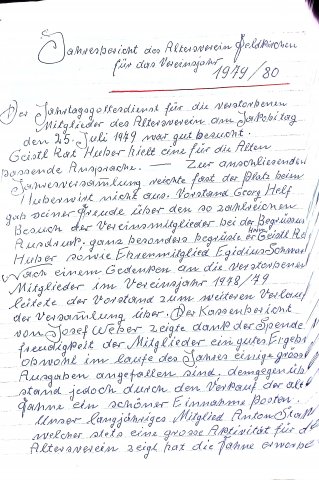 Jahresbericht des Altersverein Feldkirchen
für das Vereinsjahr
1979/80
Der Jahrtagsgottesdienst für die verstorbenen
Mitglieder des Altersverein am Jakobitag
den 25. Juli 1979 war gut besucht.
Geistl Rat Huber hielt eine für die Alten
passende Ansprache. — Zur anschliesenden
Jahresversamlung reichte fast der Platz beim
Huberwirt nicht aus. Vorstand Georg Helf
gab seiner Freude über den so zahlreichen
Besuch der Vereinsmitglieder bei der
Ausdruk, ganz besonders begrüste er Herrn Geistl. Rat
Huber sowie Ehrenmitglied Egidius
Nach einem Gedenken an die verstorbenen
Mitglieder im Vereinsjahr 1978/79
leitete der Vorstand zum weiteren Verlauf
der Versamlung über. Der Kassenbericht
von Josef Weber zeigte dank der Spende
freudigkeit der Mitglieder ein gutes Ergebn
obwohl im laufe des Jahres einige gröss
Ausgaben angefallen sind, demgegenüb
stand jedoch durch den Verkauf der alt
Fahne ein schöner Einnahme Posten.
Unser langjähriges Mitglied Anton
welcher stets eine grosse Aktivität für d
Altersverein zeigt hat die Fahne erworbe